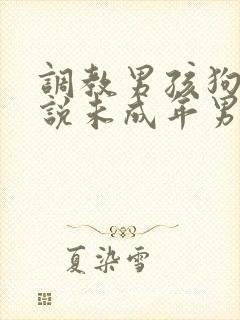 調教男孩狗
說未成年男
夏染雪